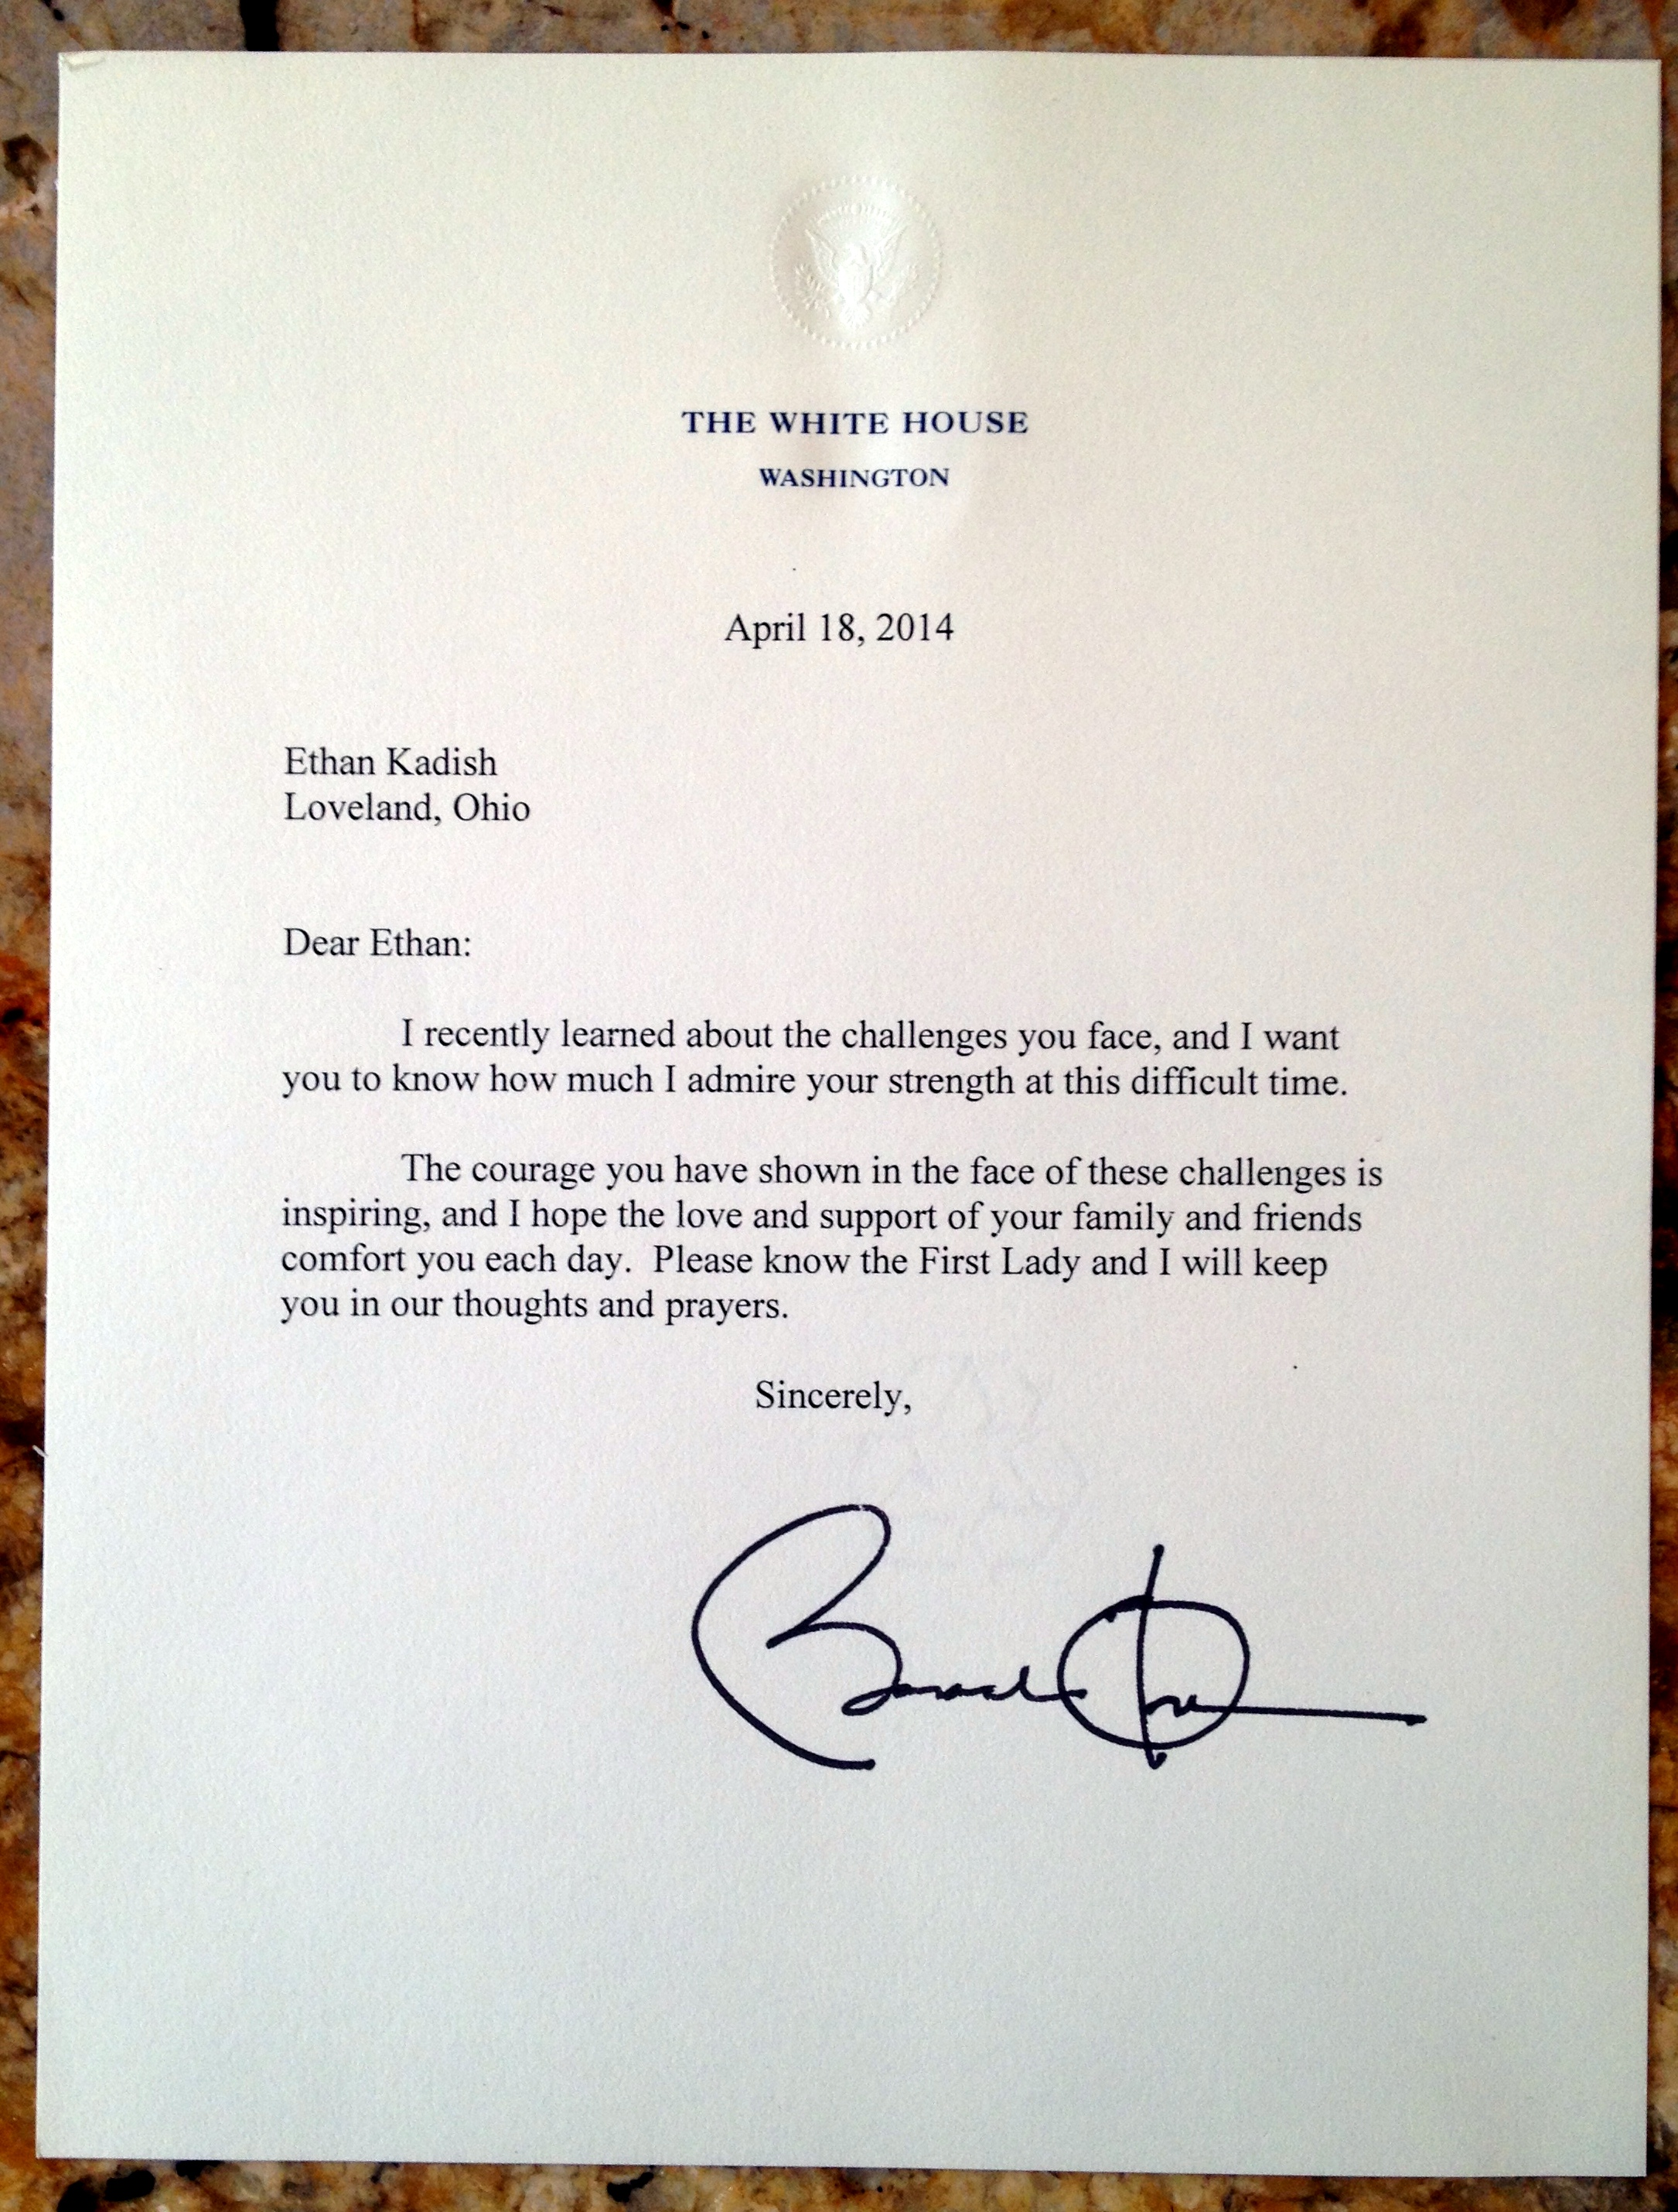 THE WHITE HOUSE
WASHINGTON
April 18, 2014
Ethan Kadish
Loveland, Ohio
Dear Ethan:
I recently learned about the challenges you face, and I want
you to know how much I admire your strength at this difficult time.
The courage you have shown in the face of these challenges is
inspiring, and I hope the love and support of your family and friends
comfort you each day.  Please know the First Lady and I will keep
you in our thoughts and prayers.
Sincerely,